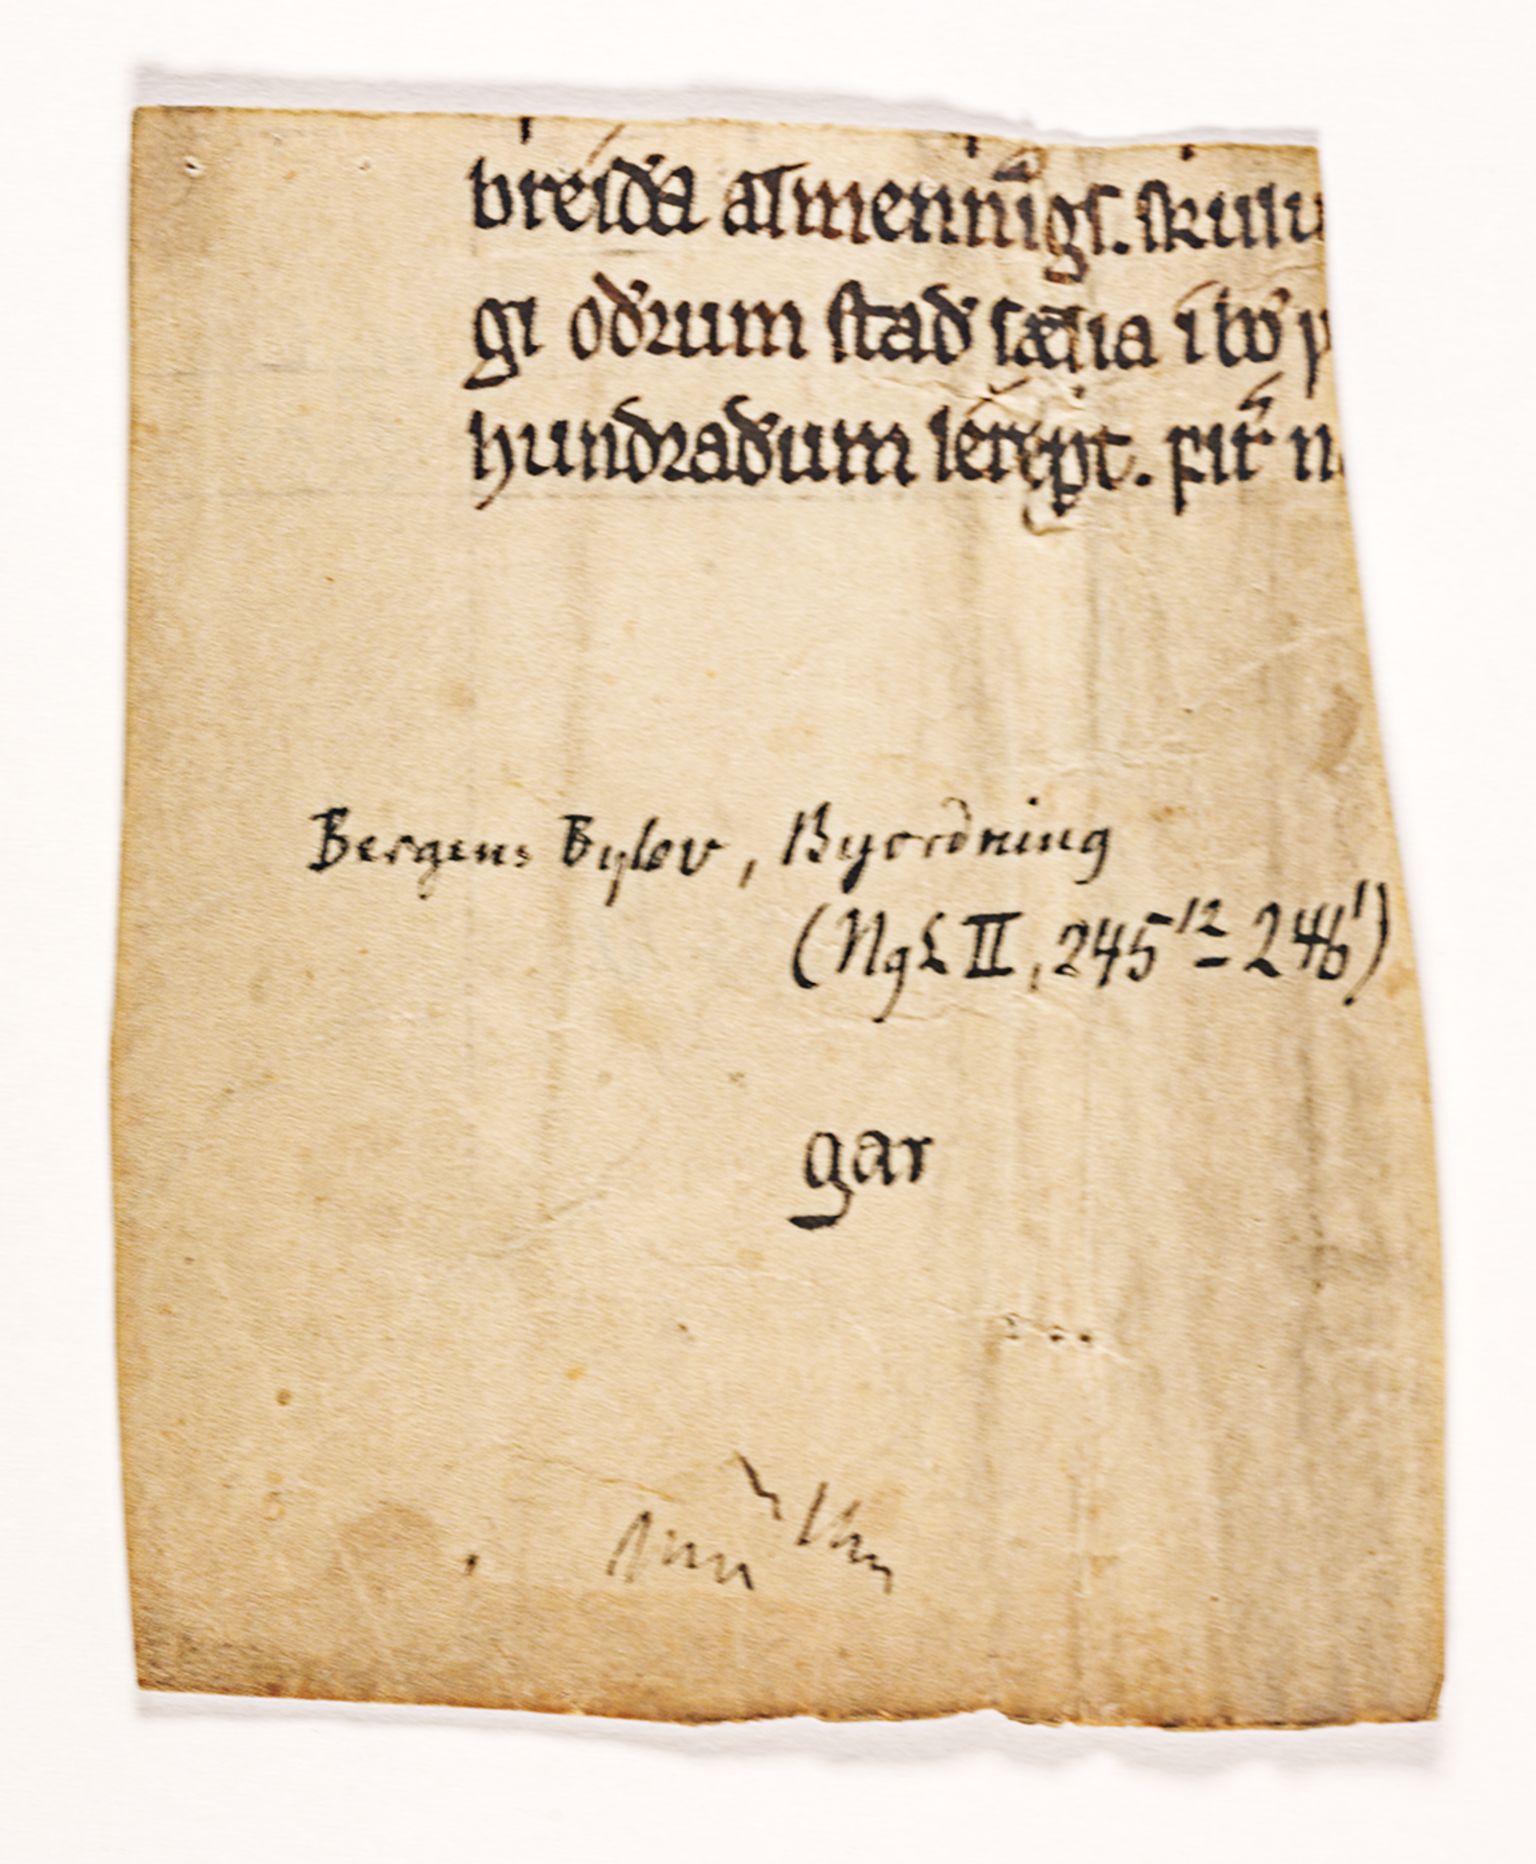 breiða almenni̅gs. skulu
gi oðrum stað sælia i bø
hundraðum lerept. fir̅ n
Bergens Bylov, Byordning
(NgL II, 245¹² – 246¹)
gar